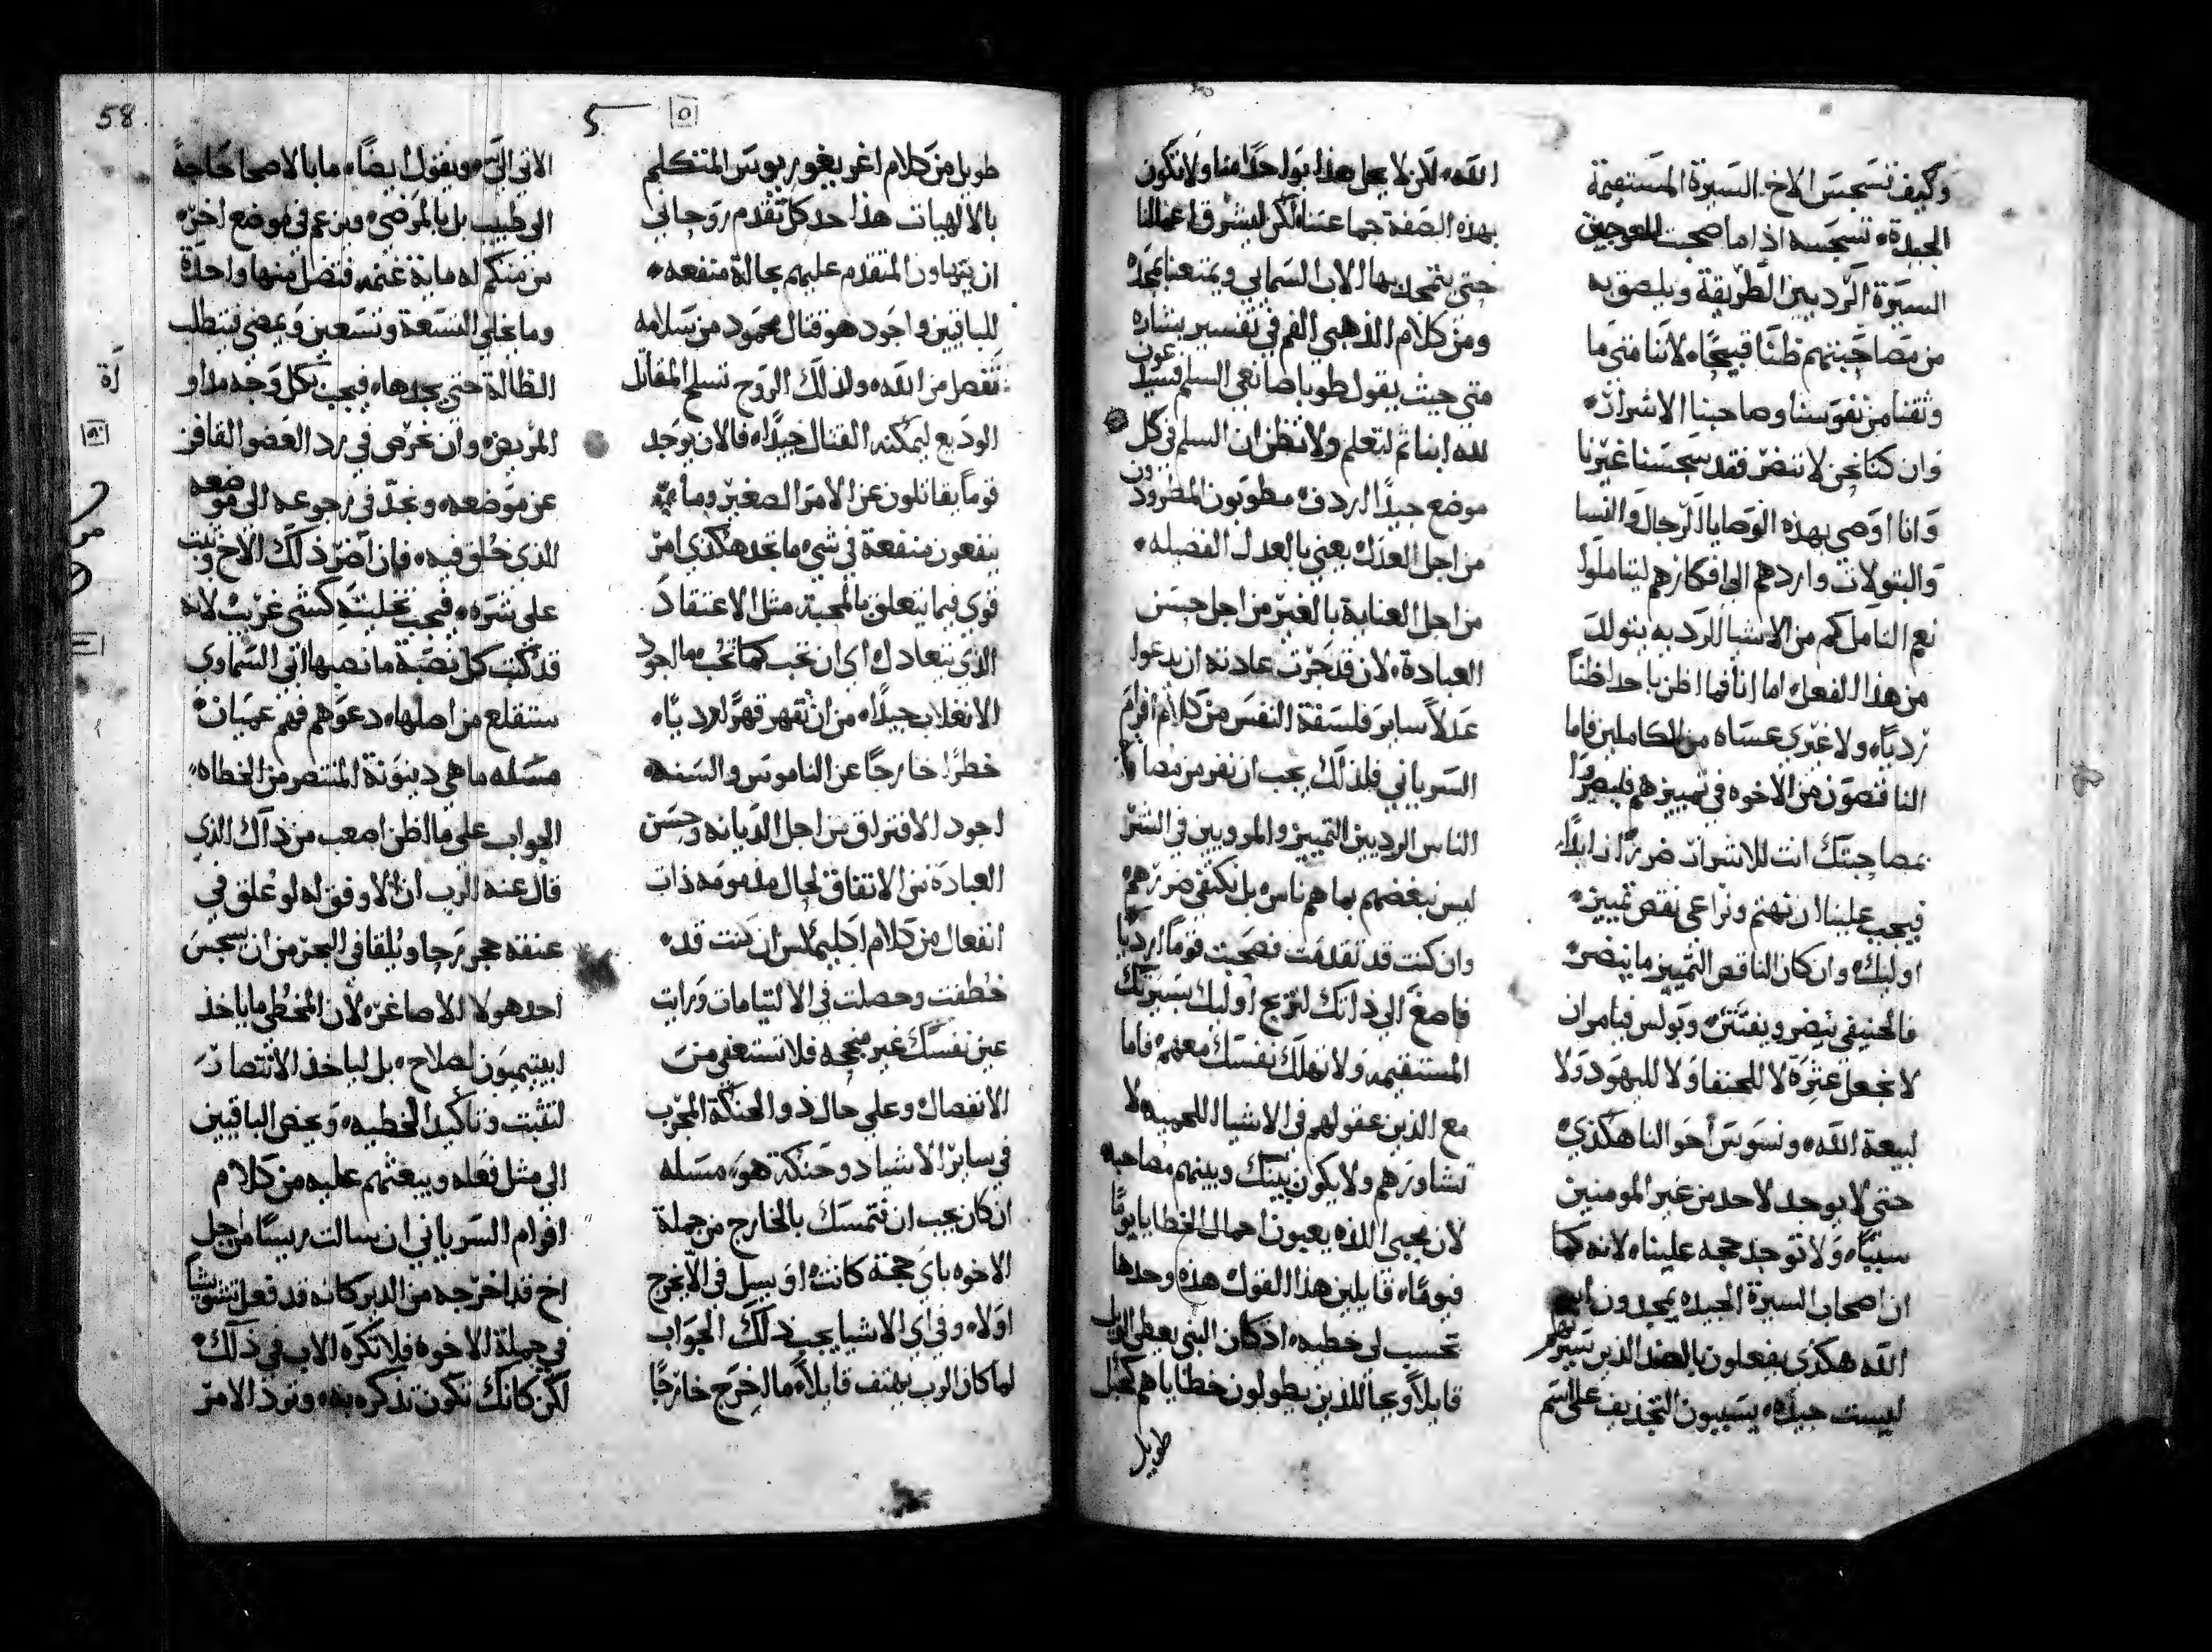 وكيف تسجس الاخ السيرة المستقيمة
الجيدة، تسجسه اذا ما صحبت المعوجين
السيرة الرديين الطريقة ويلصق به
من مصاحبتهم ظنًا قبيحًا، لاننا متى ما
وثقنا من نفوسنا وصاحبنا الاشرار،
وان كنا نحن لا ننضر فقد سجسنا غيرنا
وانا اوصي بهذه الوصايا الرجال والنسا
والبتولات واردهم الى افكارهم ليتاملوا
نعم التامل كم من الاشيا الرديه يتولد
من هذا الفعل، اما انا فما اظن باحد اظنًا
رديًا، ولا غيري عساه من الكاملين فاما
الناقصون من الاخوه في تمييزهم فليصروا
بمصاحبتك انت للاشرار ضررًا زايدًا،
فيجب علينا ان نهتم ونراعي نقص تمييز،
اوليك، وان كان الناقص التمييز ما ينضر،
فالحنيفي ينضر ويفتتن، وبولس فيامر ان
لا نجعل عثرة لا للحنفا ولا لليهود ولا
لبيعة الله، ونسوس احوالنا هكذي
حتى لا يوجد لاحد من غير المومنين
سببًا، ولا توجد حجه علينا، لانه كما
ان اصحاب السيرة الجيده يمجدون اسم
الله هكذى يفعلون بالضد الذين سيرتهم
ليست جيده، يسببون التجديف على اسم
الله، لكن لا يحل هذا بواحدًا منا ولا تكون
بهذه الصفة جماعتنا لكن لتشرق اعمالنا
حتى يتمجد بها الاب السمايي ويمتعنا بمجده
ومن كلام الذهبي الفم في تفسير بشاره
متى حيث يقول طوبا صانعي السلم فسيدعون
لله ابنا ثم لتعلم ولا تظن ان السلم في كل
موضع جيدًا اردف، مطوبون المطرودون
من اجل العدل، يعني بالعدل الفضيله،
من اجل العناية بالغير من اجل حسن
العبادة، لان قد جرت عادته ان يدعوا
عدلًا ساير فلسفة النفس من كلام افرام
السرياني فلذلك يجب ان نفر من مصا
الناس الرديين التمييز والمروبين في الشر
ليس نبغضهم بما هم ناس بل نكتفي ضررهم
وان كنت قد تقدمت فصحبت قومًا ارديا
فاصغ الى ذاتك لتربح اوليك بسيرتك
المستقيمه ولا تهلك نفسك معهم، فاما
مع الذين عقولهم في الاشيا اللحميه لا
تشاورهم ولا يكون بينك وبينهم مصاحبه
لان محبي اللذه يعبون احمال الخطايا يومًا
فيومًا، قايلين هذا القول، هذه وحدها
تحسب لى خطيه، اذ كان النبي يعطى الويل
قايلًا ويحا للذين يطولون خطاياهم كحبل
طويل
58
5 ٥
طويل من كلام اغريغوريوس المتكلم
بالالهيات هذا حد كل تقدم روحاني
ان يتهاون المتقدم عليهم بحالة منفعه،
للباقيين واجود هو قتال محمود من سلامه
تفصل من الله، ولذلك الروح تسلح المقاتل
الوديع ليمكنه القتال جيدًا، فالان يوجد
قومًا يقاتلون عن الامر الصغير وما
ينفعون منفعة في شي، ما نجد هكذي امر
قوي فيما يتعلق بالمحبة، مثل الاعتقاد
الذي يتعادل، اى ان نحب كما نحب ما اجود
الانغلاب جيدًا، من ان نقهر قهرًا رديًا،
خطرًا خارجًا عن الناموس والسنه
اجود الافتراق من اجل الديانه وحسن
العبادة من الاتفاق لحال مذمومه ذات
انفعال من كلام اكليماكس ان كنت قد
خطفت وحصلت في الالتيامات ورايت
عين نفسك غير منجحه فلا تستعفي من
الانفصال وعلى حال ذوا الحنكة المجرب
في ساير الاشيا دو حنكة هو، مسله
ان كان يجب ان نتمسك بالخارج من جملة
الاخوه باي حجة كانت، او بسيل في الاخرج
اولًا، وفي اى الاشيا يجب ذلك الجواب
لما كان الرب يهتف قايلًا، ما اخرج خارجًا
الاتي الي، ويقول ايضًا، ما بالاصحا حاجة
الى طبيب بل بالمرضى، ويزعم في موضع اخر،
من منكم له ماية غنمه فتضل منها واحدة
وما يخلي التسعة وتسعين ويمضي فيطلب
الظالة حتى يجدها، فيجب بكل وجه مداوا
المريض، وان نحرص في رد العضو القافز
عن موضعه، ونجد في رجوعه الى موضعه
الذي خلق فيه، فان اضر ذلك الاخ وثبت
على شره، فيجب تخليته كشى غريب لانه
قد كتب كل نصبة ما نصبها ابي السماوي
ستقلع من اصلها، دعوهم فهم عميان،
مسله ما هي دينونة المنتصر من الخطاه،
الجواب على ما اظن اصعب من ذاك الذي
قال عنه الرب ان الاوفق له لو علق في
عنقه حجر رحا ويلقا في البحر من ان يسجس
احد هولا الاصاغر، لان المخطي ما ياخذ
لصلاح، بل لياخذ الانتصار
لتثبت وتاكيد الخطيه، ويحض الباقيين
الي مثل فعله ويبعثهم عليه من كلام
افرام السرياني ان سالت ريسًا من اجل
اخ قد اخرجه من الدير كانه قد فعل تشويشا
في جملة الاخوه فلا تكره الاب في ذلك،
لكن كانك تكون تذكره به، وترد الامر